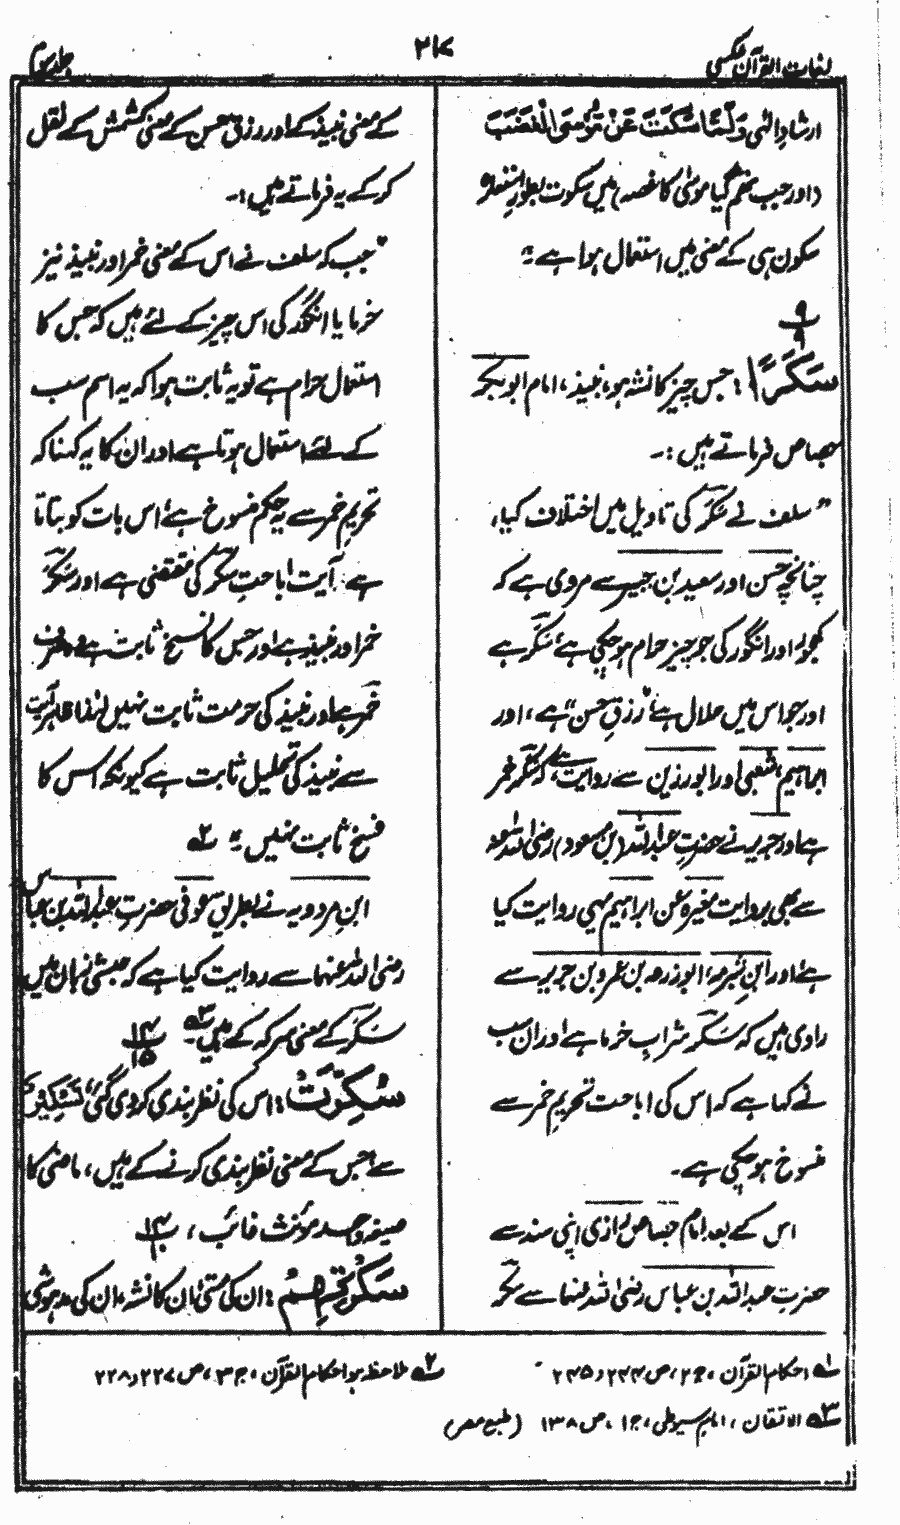 لغات القرآن عکسی
۲۱۷
جلد سوم
ارشادِ الٰہی وَلَمَّا سَكَتَ عَنْ مُّوْسَى الْغَضَبُ
(اور جب تھم گیا موسیٰ کا غصہ) میں سکوت بطور استعارہ
سکون ہی کے معنی میں استعمال ہوا ہے۔
سَكَرًا: جس چیز کا نشہ ہو، نبیذ، امام ابوبکر
جصاص فرماتے ہیں:۔
"سلف نے سَکَر کی تاویل میں اختلاف کیا،
چنانچہ حسن اور سعید بن جبیر سے مروی ہے کہ
کھجور اور انگور کی جو چیز حرام ہو چکی ہے سَکَر ہے
اور جو اس میں حلال ہے "رزقِ حسن" ہے، اور
ابراہیم، شعبی اور ابو رزین سے روایت ہے کہ سَکَر خمر
ہے اور جریر نے حضرت عبداللہ (بن مسعود) رضی اللہ عنہ
سے بھی بروایت مغیرہ عن ابراہیم یہی روایت کیا
ہے اور ابنِ شبرمہ، ابو زرعہ بن عمرو بن جریر سے
راوی ہیں کہ سَکَر شرابِ خرما ہے اور ان سب
نے کہا ہے کہ اس کی اباحت تحریمِ خمر سے
منسوخ ہو چکی ہے۔
اس کے بعد امام جصاص رازی اپنی سند سے
حضرت عبداللہ بن عباس رضی اللہ عنہما سے سکر
کے معنی نبیذ کے اور رزق حسن کے معنی کشمش کے نقل
کر کے یہ فرماتے ہیں:۔
"جب کہ سلف نے اس کے معنی خمر اور نبیذ نیز
خرما یا انگور کی اس چیز کے لئے ہیں کہ جس کا
استعمال حرام ہے تو یہ ثابت ہوا کہ یہ اسم سب
کے لئے استعمال ہوتا ہے اور ان کا یہ کہنا کہ
تحریمِ خمر سے یہ حکم منسوخ ہے اس بات کو بتاتا
ہے آیت اباحتِ سکر کی مقتضی ہے اور سَکَر
خمر اور نبیذ ہے اور جس کا نسخ ثابت ہے وہ صرف
خمر ہے اور نبیذ کی حرمت ثابت نہیں لہٰذا ظاہر آیت
سے نبیذ کی تحلیل ثابت ہے کیونکہ اس کا
نسخ ثابت نہیں"۔ ۲ے
ابنِ مردویہ نے بطریق عوفی حضرت عبداللہ بن عباس
رضی اللہ عنہما سے روایت کیا ہے کہ حبشی زبان میں
سَکَر کے معنی سرکہ کے ہیں۔ ۳ے ۱۴/۱۵
سُكِّرَتْ: اس کی نظر بندی کردی گئی، تَسْكِيْرٌ
سے جس کے معنی نظر بندی کرنے کے ہیں، ماضی کا
صیغہ واحد مؤنث غائب،
سَكْرَتِهِمْ: ان کی مستی، ان کا نشہ، ان کی مدہوشی
۱ے احکام القرآن، ج ۲، ص ۲۴۴ و ۲۴۵
۲ے ملاحظہ ہو احکام القرآن، ج ۳، ص ۲۲۷ و ۲۲۸
۳ے الاتقان، امام سیوطی، ج ۱، ص ۱۳۸ (طبع مصر)